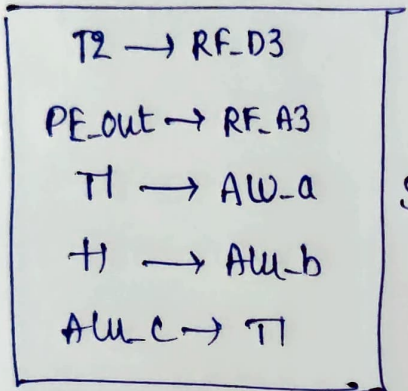 T2 → RF_D3
PE_out → RF_A3
T1 → ALU_a
+1 → ALU_b
ALU_C → T1
S